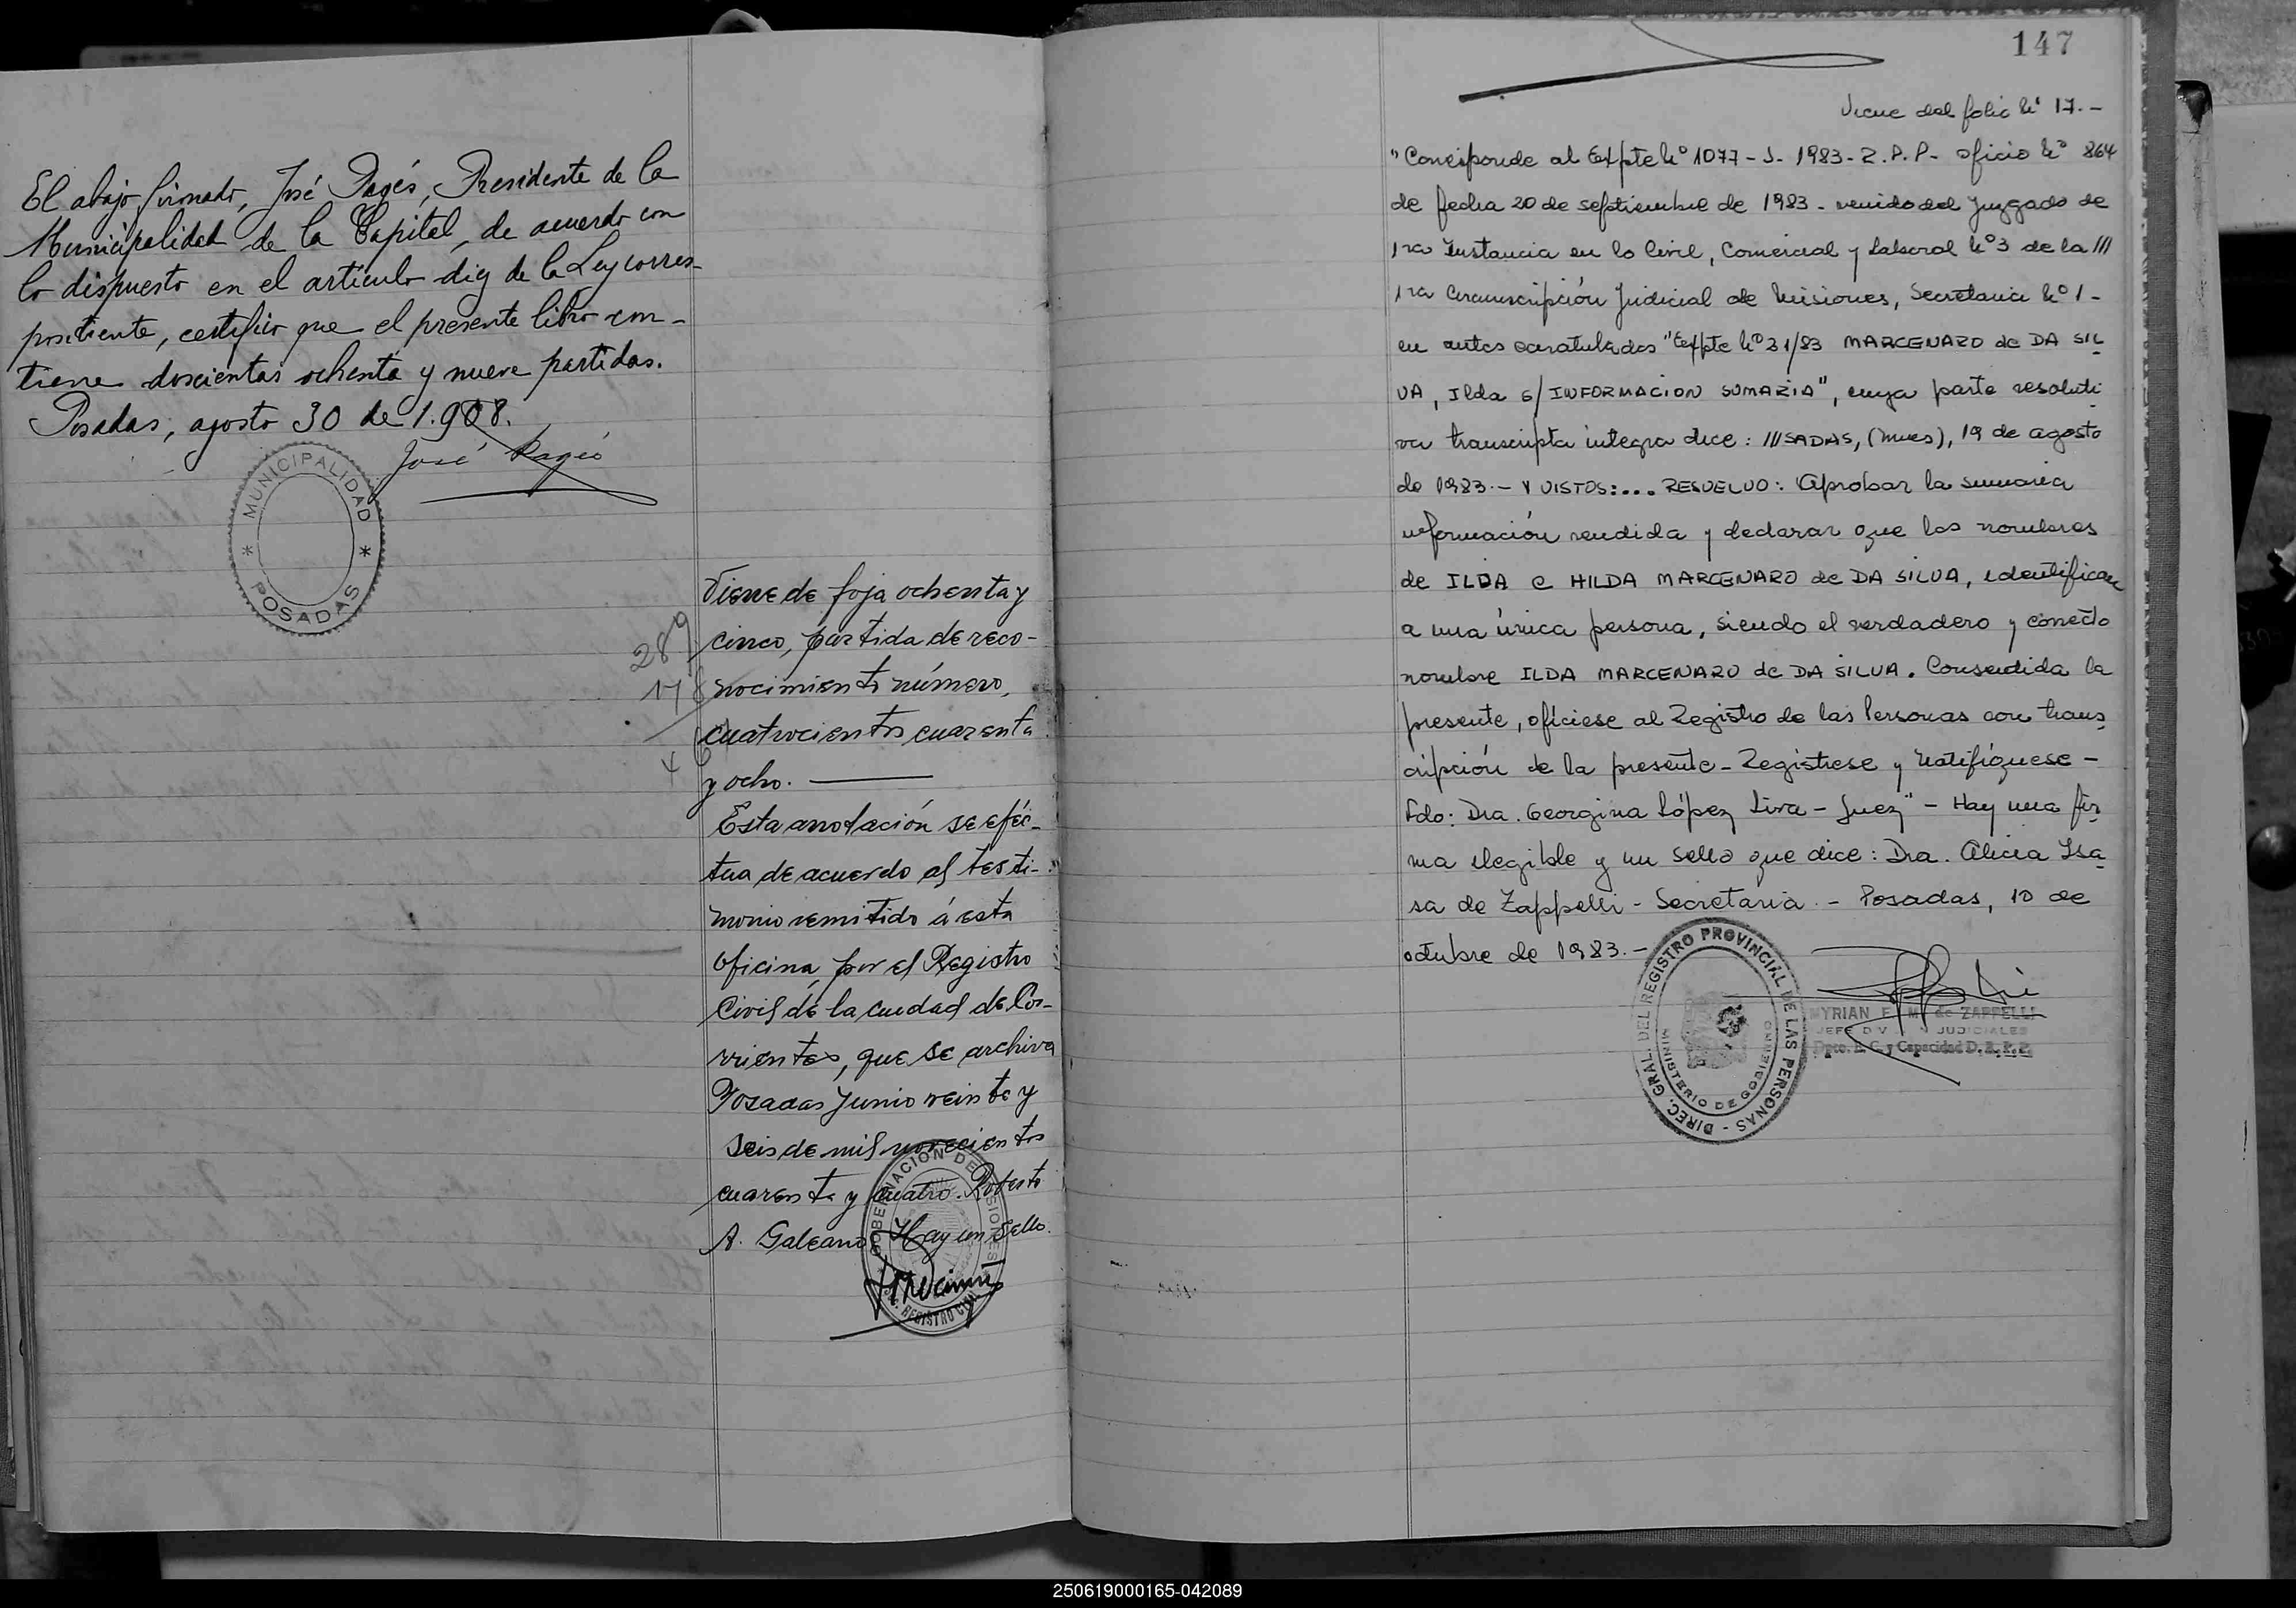 El abajo firmado, José Pagés, Presidente de la
Municipalidad de la Capital, de acuerdo con
lo dispuesto en el artículo diez de la Ley corres-
pondiente, certifico que el presente libro con-
tiene doscientas ochenta y nueve partidas.
Posadas, agosto 30 de 1.908.
José Pagés
MUNICIPALIDAD
* *
POSADAS
289
178
Viene de foja ochenta y
cinco, partida de reco-
nocimiento número,
cuatrocientos cuarenta
y ocho.
Esta anotación se efec-
tua de acuerdo al testi-
monio remitido á esta
oficina, por el Registro
Civil de la ciudad de Co-
rrientes, que se archiva
Posadas Junio veinte y
seis de mil novecientos
cuarenta y cuatro. Roberto
A. Galeano Hay un Sello.
GOBERNACION DE MISIONES
REGISTRO CIVIL
147
Viene del folio Nº 17.-
"Corresponde al Expte Nº 1077-J-1983-R.P.P- oficio Nº 864
de fecha 20 de septiembre de 1983 - venido del Juzgado de
1ra Instancia en lo Civil, Comercial y Laboral Nº 3 de la ///
1ra Circunscripción Judicial de Misiones, Secretaria Nº 1-
en autos caratulados "Expte Nº 31/83 MARCENARO de DA SIL
VA, Ilda s/ INFORMACION SUMARIA", cuya parte resoluti
va transcripta integra dice: ///SADAS, (Mnes), 19 de agosto
de 1983.- Y VISTOS:... RESUELVO: Aprobar la sumaria
información rendida y declarar que los nombres
de ILDA e HILDA MARCENARO de DA SILVA, identifican
a una única persona, siendo el verdadero y correcto
nombre ILDA MARCENARO de DA SILVA. Consentida la
presente, ofíciese al Registro de las Personas con trans
cripción de la presente - Registrese y Notifíquese -
Fdo: Dra. Georgina López Liva - Juez" - Hay una fir
ma ilegible y un sello que dice: Dra. Alicia Isa
sa de Zappelli - Secretaria - Posadas, 10 de
octubre de 1983.-
DIREC. GRAL. DEL REGISTRO PROVINCIAL DE LAS PERSONAS -
MINISTERIO DE GOBIERNO
MYRIAN E. M. de ZAPPELLI
JEFE DIVISION JUDICIALES
Dpto. E. C. y Capacidad D. R. P. P.
250619000165-042089